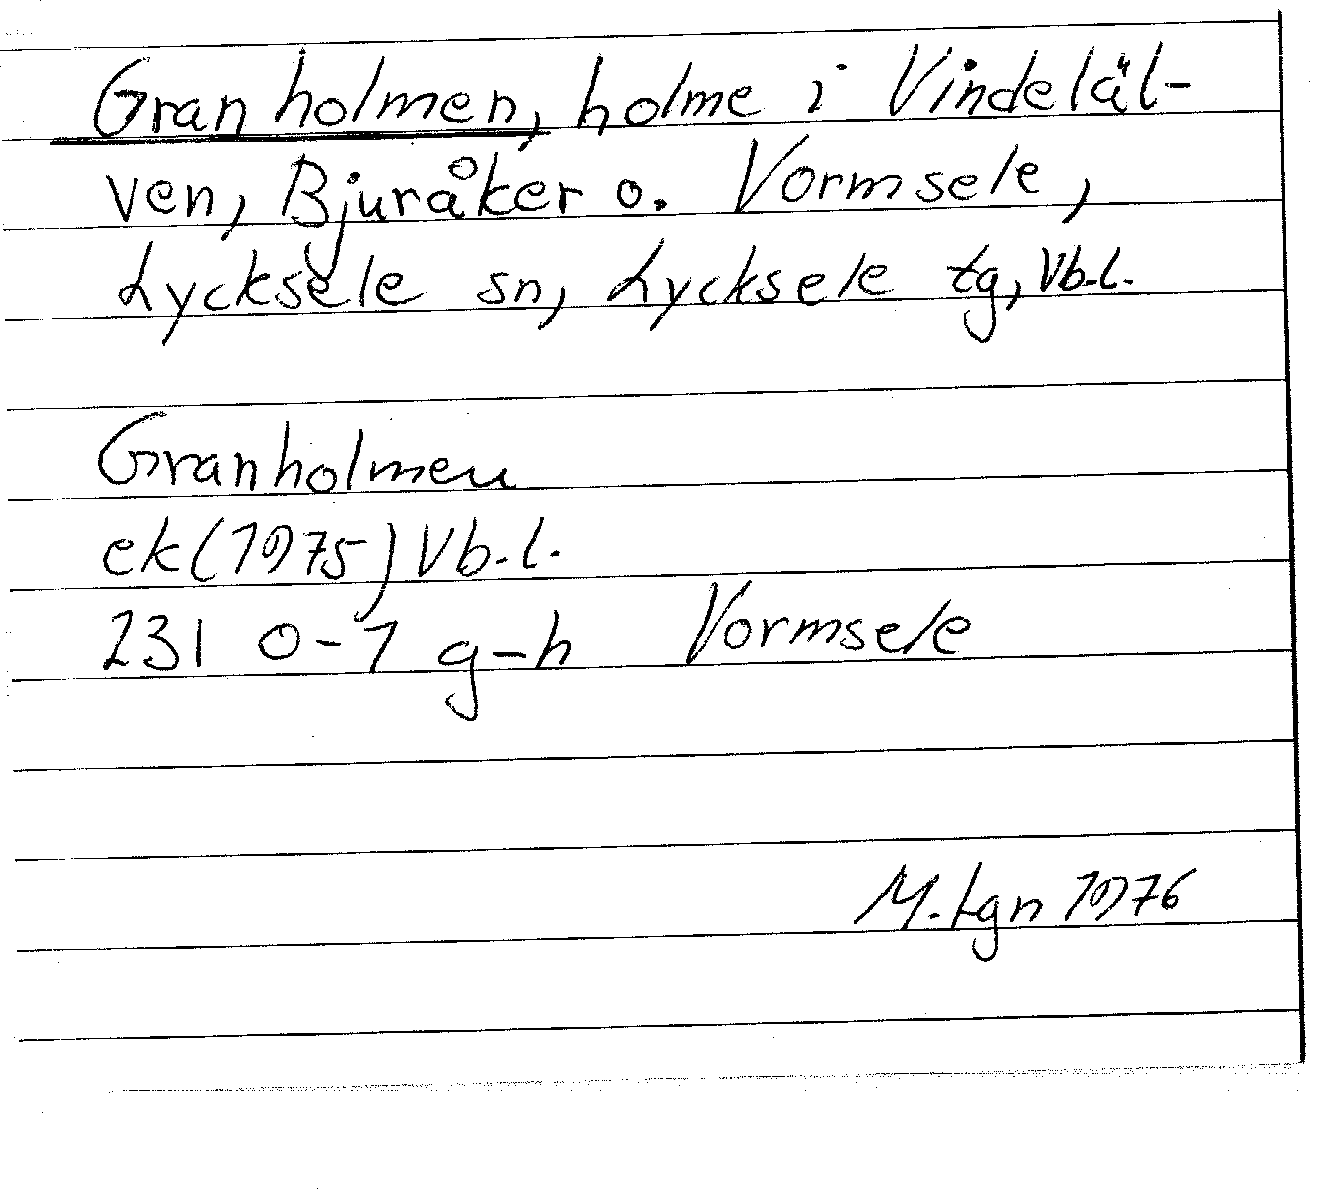 Granholmen, holme i Vindeläl-
ven, Bjuråker o. Vormsele,
Lycksele sn, Lycksele tg, Vb.l.
Granholmen
ek (1975) Vb.l.
231 0-1 g-h Vormsele
M. Lgn 1976